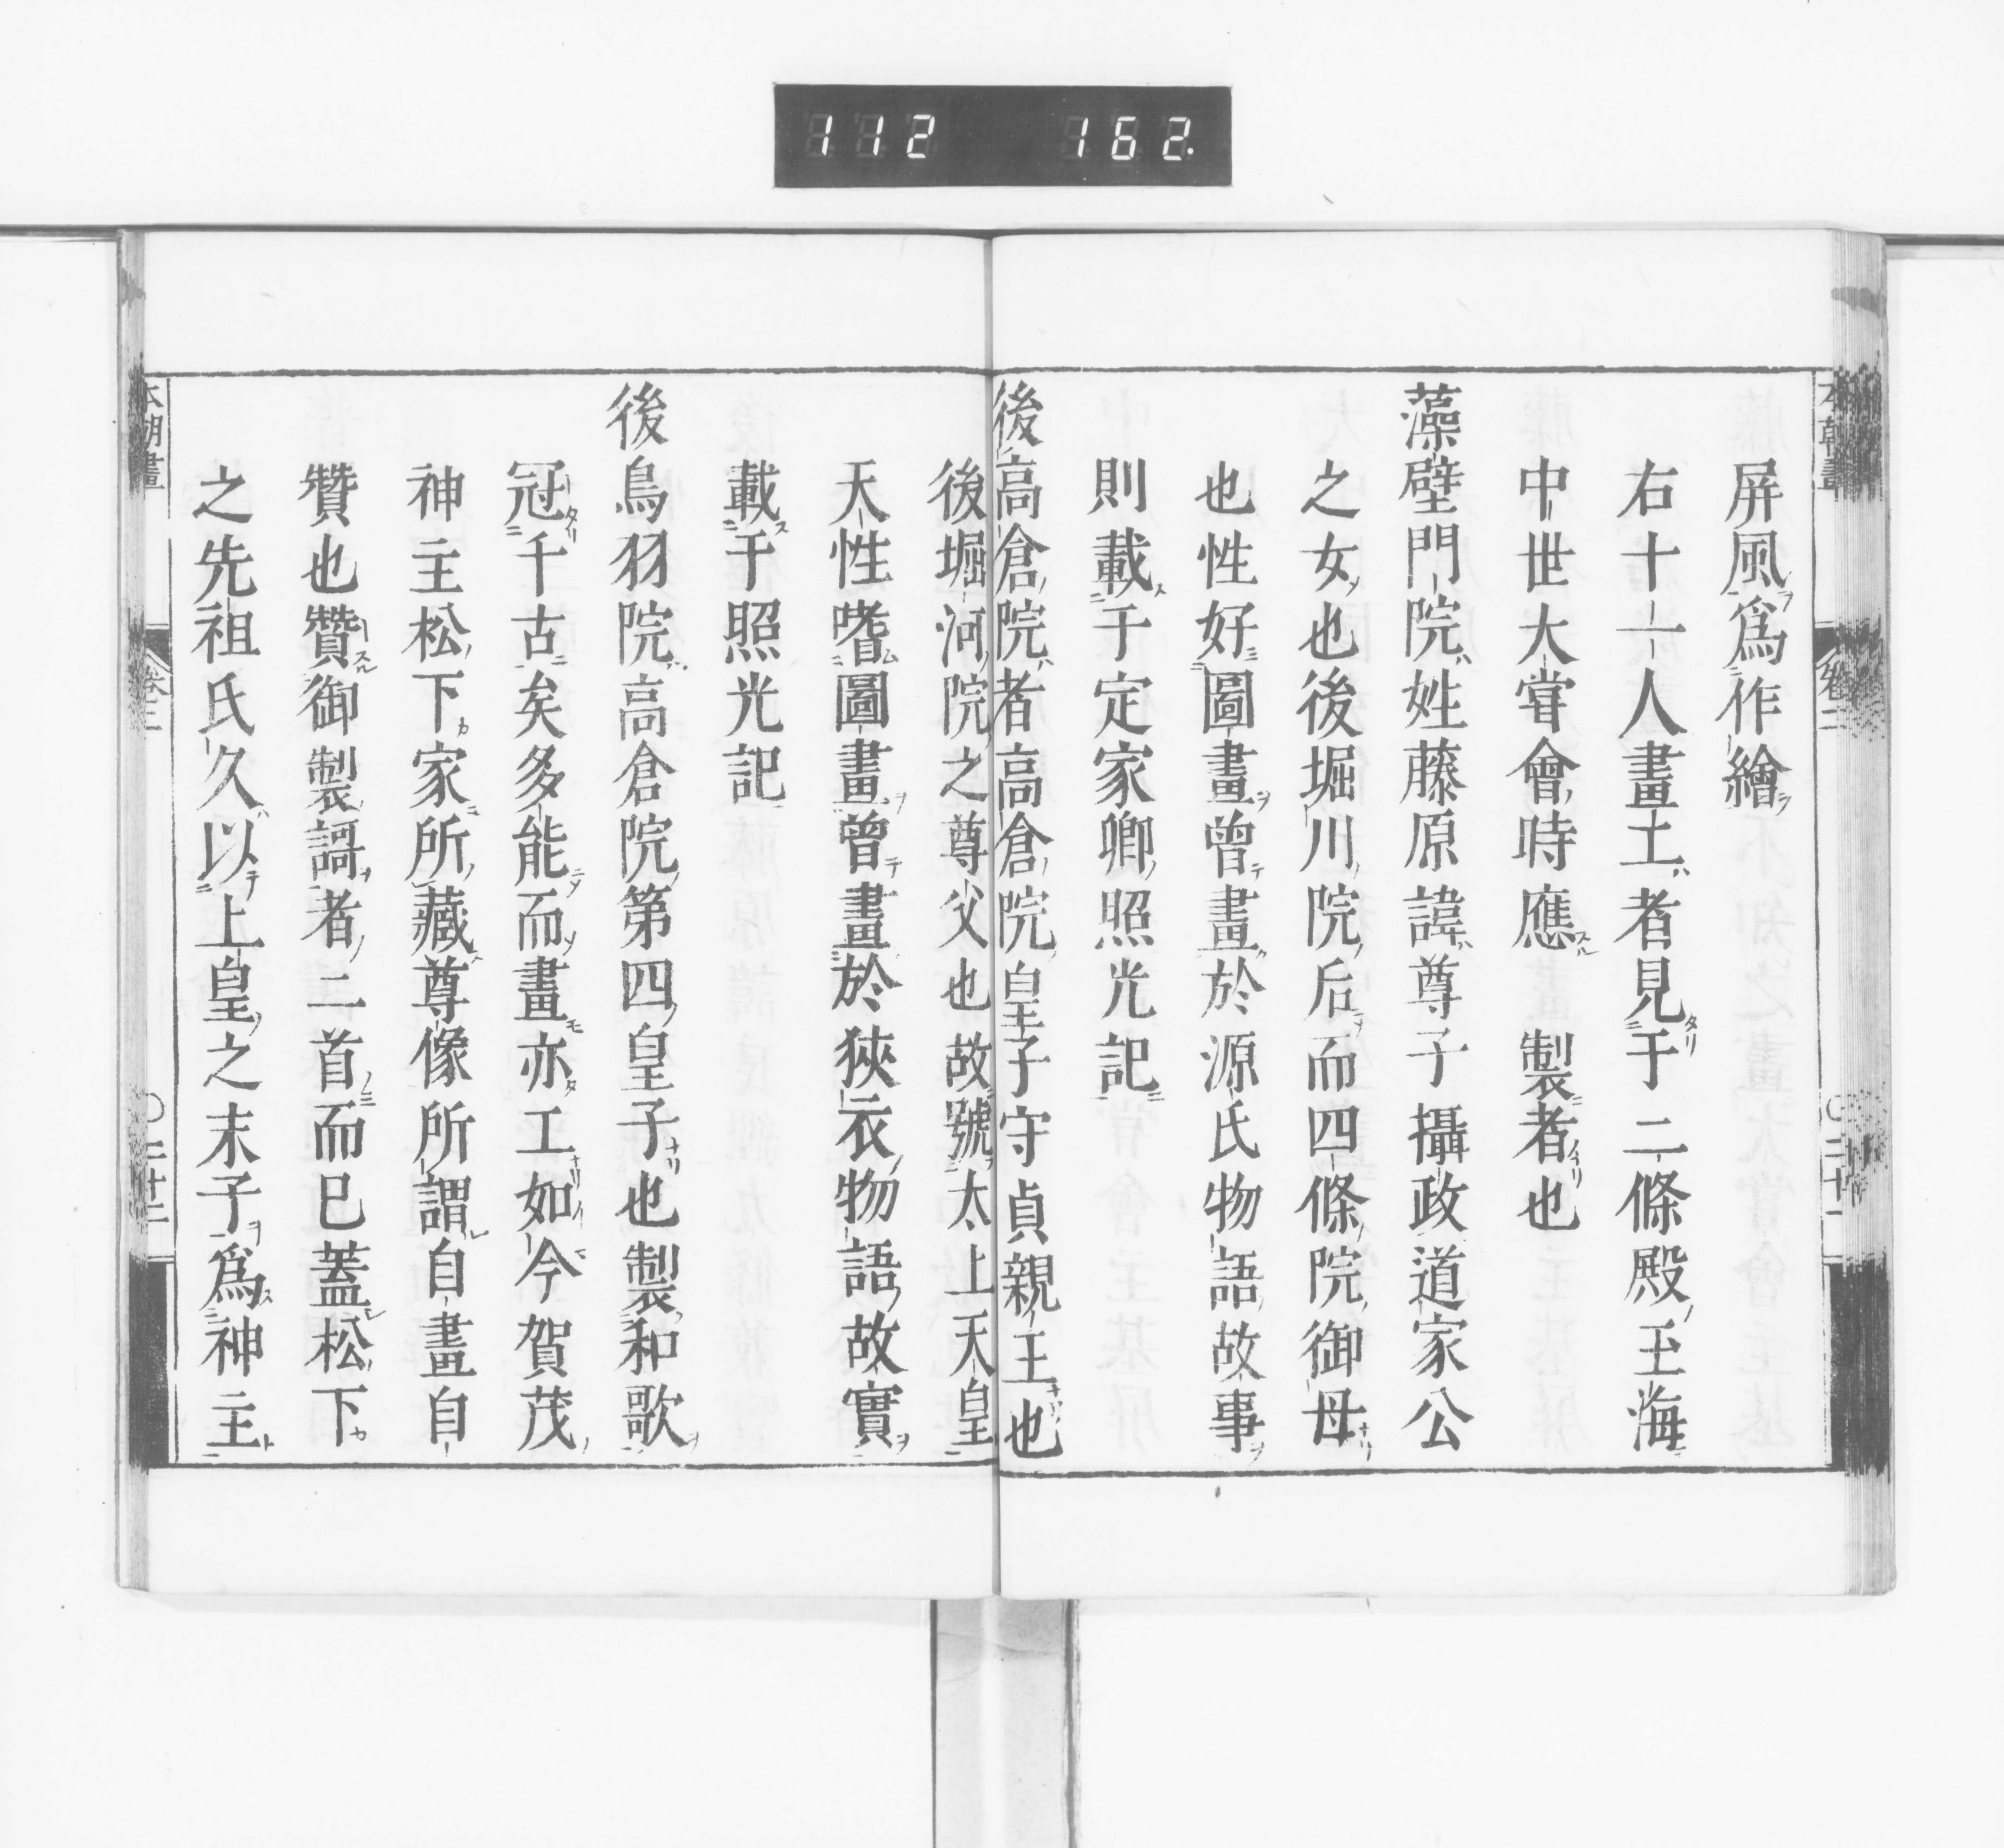 112 162.
屏風爲作繪
右十一人畫工者見于二條殿玉海
中世大甞會時應製者也
藻壁門院姓藤原諱尊子攝政道家公
之女也後堀川院后而四條院御母
也性好圖畫曾畫於源氏物語故事
則載于定家卿照光記
後高倉院者高倉院皇子守貞親王也
後堀河院之尊父也故號太上天皇
天性嗜圖畫曾畫於狹衣物語故實
載于照光記
後鳥羽院高倉院第四皇子也製和歌
冠千古矣多能而畫亦工如今賀茂
神主松下家所藏尊像所謂自畫自
贊也贊御製謌者二首而已蓋松下
之先祖氏久以上皇之末子爲神主
本朝畫
卷三
〇二十二